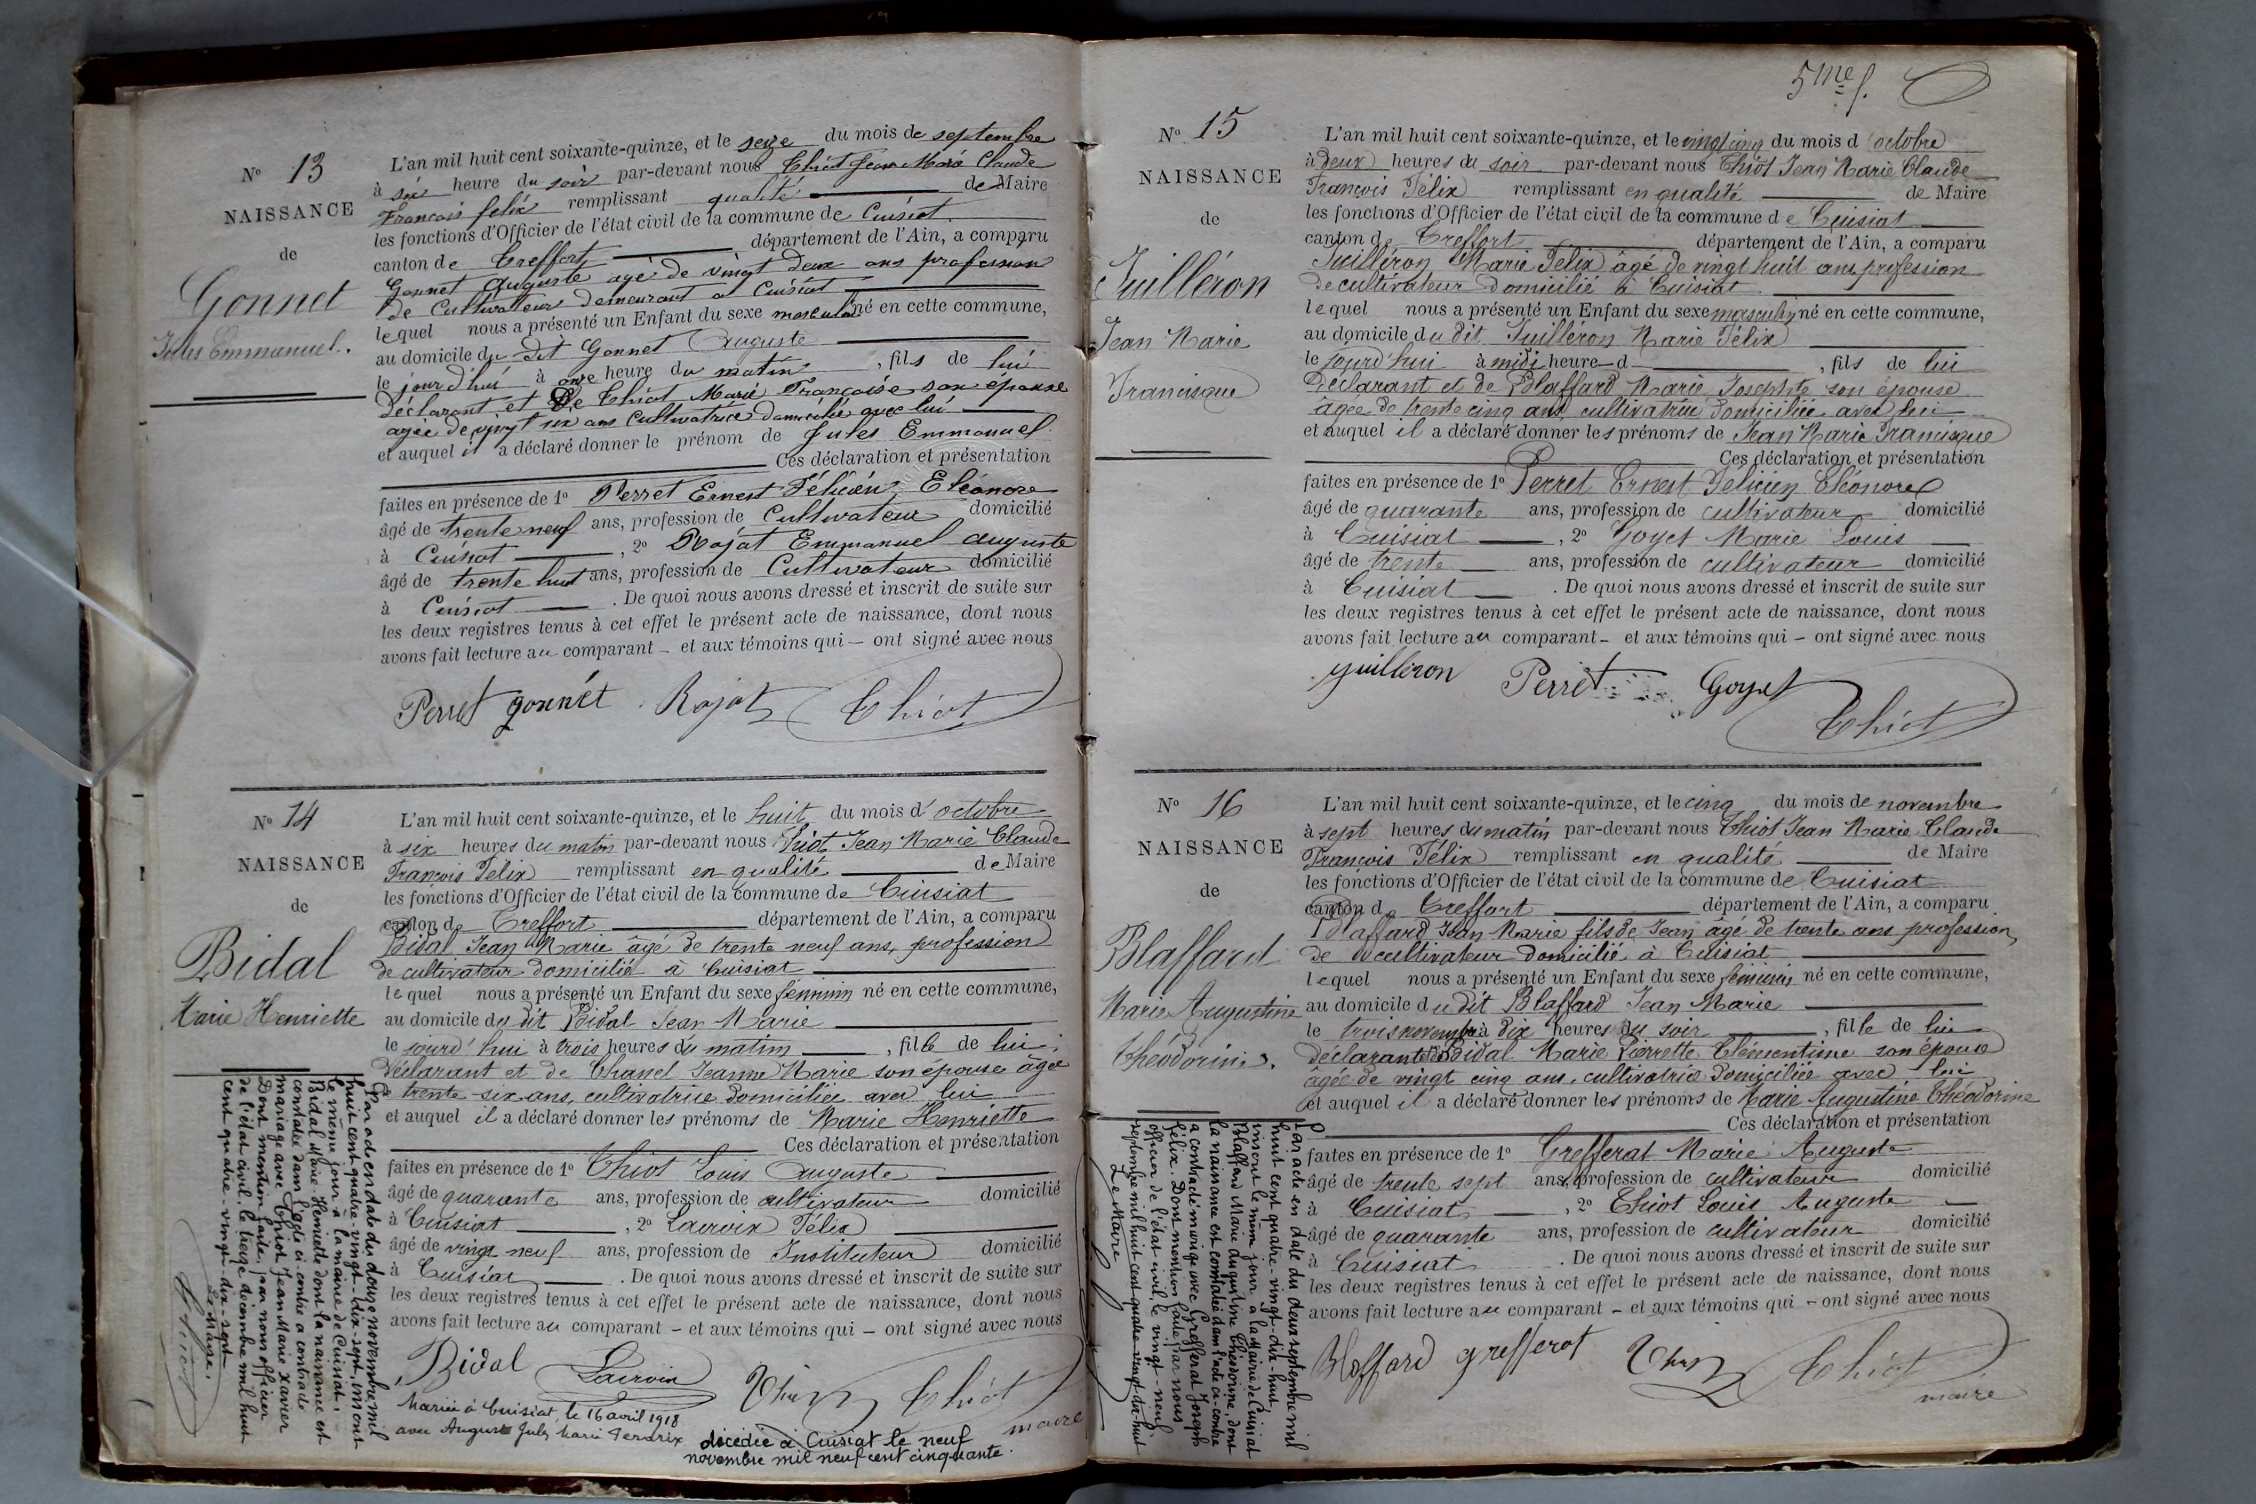 N° 13
NAISSANCE
de
Gonnet
Jules Emmanuel.
L'an mil huit cent soixante-quinze, et le seize du mois de septembre
à six heure du soir par-devant nous Chiot Jean Marie Claude
François felix remplissant qualité de Maire
les fonctions d'Officier de l'état civil de la commune de Cuisiat
canton de Treffort département de l'Ain, a comparu
Gonnet Auguste agé de vingt deux ans profession
de Cultivateur demeurant a Cuisiat
lequel nous a présenté un Enfant du sexe masculin né en cette commune,
au domicile du dit Gonnet Auguste
le jourd'hui à onze heure du matin, fils de lui
déclarant et de Chiot Marie Françoise son épouse
agée de vingt six ans Cultivatrice domiciliée avec lui
et auquel il a déclaré donner le prénom de Jules Emmanuel
Ces déclaration et présentation
faites en présence de 1° Perret Ernest Félicien Eléonore
âgé de trente neuf ans, profession de Cultivateur domicilié
à Cuisiat, 2° Rojat Emmanuel auguste
âgé de trente huit ans, profession de Cultivateur domicilié
à Cuisiat. De quoi nous avons dressé et inscrit de suite sur
les deux registres tenus à cet effet le présent acte de naissance, dont nous
avons fait lecture au comparant - et aux témoins qui - ont signé avec nous
Perret gonnet Rojat Chiot
N° 14
NAISSANCE
de
Bidal
Marie Henriette
L'an mil huit cent soixante-quinze, et le huit du mois d'octobre
à six heures du matin par-devant nous Chiot Jean Marie Claude
François Felix remplissant en qualité de Maire
les fonctions d'Officier de l'état civil de la commune de Cuisiat
canton de Treffort département de l'Ain, a comparu
Bidal Jean Marie âgé de trente neuf ans, profession
de cultivateur domicilié à Cuisiat
lequel nous a présenté un Enfant du sexe féminin né en cette commune,
au domicile du dit Bidal Jean Marie
le jourd'hui à trois heures du matin, fille de lui
déclarant et de Chanel Jeanne Marie son épouse âgée
de trente six ans, cultivatrice domiciliée avec lui
et auquel il a déclaré donner les prénoms de Marie Henriette
Ces déclaration et présentation
faites en présence de 1° Chiot Louis Auguste
âgé de quarante ans, profession de cultivateur domicilié
à Cuisiat, 2° Lacroix Félix
âgé de vingt neuf ans, profession de Instituteur domicilié
à Cuisiat. De quoi nous avons dressé et inscrit de suite sur
les deux registres tenus à cet effet le présent acte de naissance, dont nous
avons fait lecture au comparant - et aux témoins qui - ont signé avec nous
Bidal Lacroix Chiot Chiot
maire
Mariée à Cuisiat, le 16 avril 1918
avec August July Marie
décédée à Cuisiat le neuf
novembre mil neuf cent cinquante.
Par acte en date du douze novembre mil
huit cent quatre-vingt-dix-sept, inscrit
le même jour à la mairie de Cuisiat,
Bidal Marie Henriette dont la naissance est
constatée dans l'acte ci-contre a contracté
mariage avec Chiot Jean Marie Xavier
Dont mention faite par nous officier
de l'état civil, le treize décembre mil huit
cent quatre-vingt-dix-sept
Le Maire,
N° 15
NAISSANCE
de
Juilléron
Jean Marie
Francisque
5me f.
L'an mil huit cent soixante-quinze, et le vingt cinq du mois d'octobre
à deux heures du soir par-devant nous Chiot Jean Marie Claude
François Félix remplissant en qualité de Maire
les fonctions d'Officier de l'état civil de la commune de Cuisiat
canton de Treffort département de l'Ain, a comparu
Juilléron Marie Félix âgé de vingt huit ans, profession
de cultivateur domicilié à Cuisiat
lequel nous a présenté un Enfant du sexe masculin né en cette commune,
au domicile du dit Juilléron Marie Félix
le jourd'hui à midi heure d, fils de lui
déclarant et de Blaffard Marie Josephte son épouse
âgée de trente cinq ans cultivatrice domiciliée avec lui
et auquel il a déclaré donner les prénoms de Jean Marie Francisque
Ces déclaration et présentation
faites en présence de 1° Perret Ernest Felicien Eléonore
âgé de quarante ans, profession de cultivateur domicilié
à Cuisiat, 2° Goyet Marie Louis
âgé de trente ans, profession de cultivateur domicilié
à Cuisiat. De quoi nous avons dressé et inscrit de suite sur
les deux registres tenus à cet effet le présent acte de naissance, dont nous
avons fait lecture au comparant - et aux témoins qui - ont signé avec nous
juilleron Perret Goyet
Chiot
N° 16
NAISSANCE
de
Blaffard
Marie Augustine
Théodorine.
L'an mil huit cent soixante-quinze, et le cinq du mois de novembre
à sept heures du matin par-devant nous Chiot Jean Marie Claude
François Félix remplissant en qualité de Maire
les fonctions d'Officier de l'état civil de la commune de Cuisiat
canton de Treffort département de l'Ain, a comparu
Blaffard Jean Marie fils de Jean âgé de trente ans profession
de cultivateur domicilié à Cuisiat
lequel nous a présenté un Enfant du sexe féminin né en cette commune,
au domicile du dit Blaffard Jean Marie
le trois novembre à dix heures du soir, fille de lui
déclarant et de Bidal Marie Pierrette Clémentine son épouse
âgée de vingt cinq ans, cultivatrice domiciliée avec lui
et auquel il a déclaré donner les prénoms de Marie Augustine Théodorine
Ces déclaration et présentation
faites en présence de 1° Grefferat Marie Auguste
âgé de trente sept ans, profession de cultivateur domicilié
à Cuisiat, 2° Chiot Louis Auguste
âgé de quarante ans, profession de cultivateur domicilié
à Cuisiat. De quoi nous avons dressé et inscrit de suite sur
les deux registres tenus à cet effet le présent acte de naissance, dont nous
avons fait lecture au comparant - et aux témoins qui - ont signé avec nous
Blaffard grefferat Chiot Chiot
maire
Par acte en date du deux septembre mil
huit cent quatre-vingt-dix-huit,
inscrit le même jour à la Mairie de Cuisiat
Blaffard Marie Augustine Théodorine, dont
la naissance est constatée dans l'acte ci-contre
a contracté mariage avec Grefferat Joseph
Félix. Dont mention faite par nous
officier de l'état civil, le vingt-neuf
septembre mil huit cent quatre-vingt-dix-huit
Le Maire